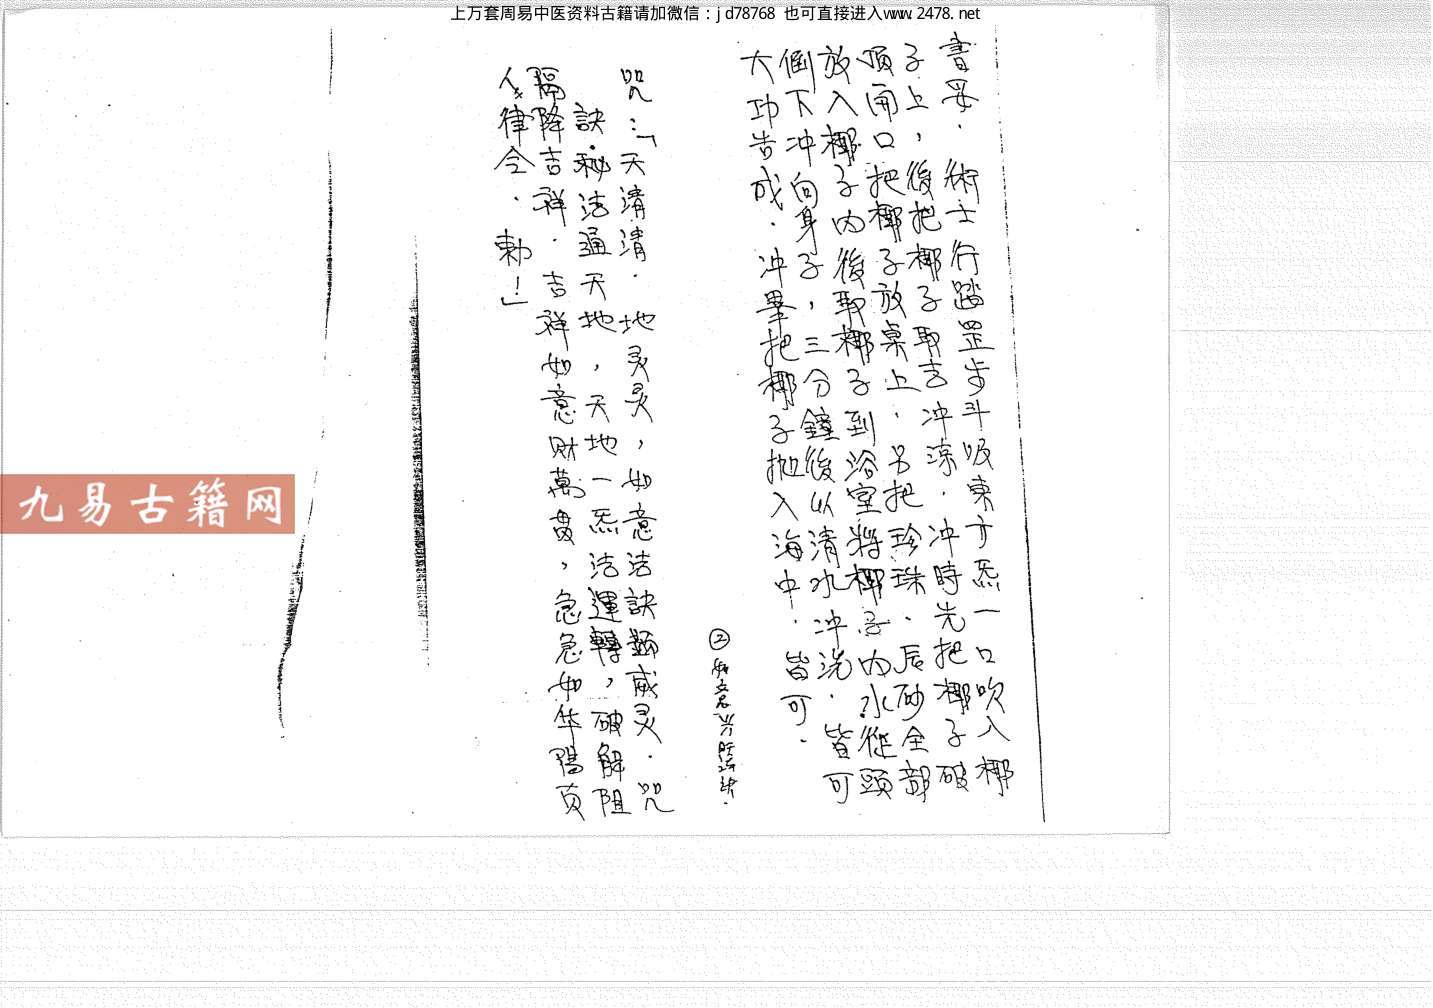 上万套周易中医资料古籍请加微信：jd78768 也可直接进入www.2478.net
書妥．術士行踏罡步斗吸東方炁一口吹入椰
子上，後把椰子取去冲涼．冲時先把椰子破
頂開口把椰子放桌上．另把珍珠．辰砂全部
放入椰子內後取椰子到浴室將椰子內水從頭
倒下冲向身子，三分鐘後以清水冲洗．皆可
大功告成．冲畢把椰子拋入海中．皆可．
②如意
咒：「天清清．地灵灵，如意法訣顯威灵．咒
訣秘法通天地，天地一炁法運轉，破解阻
隔降吉祥．吉祥如意財萬貫，急急如华陽真
人律令．勅！」
九易古籍网